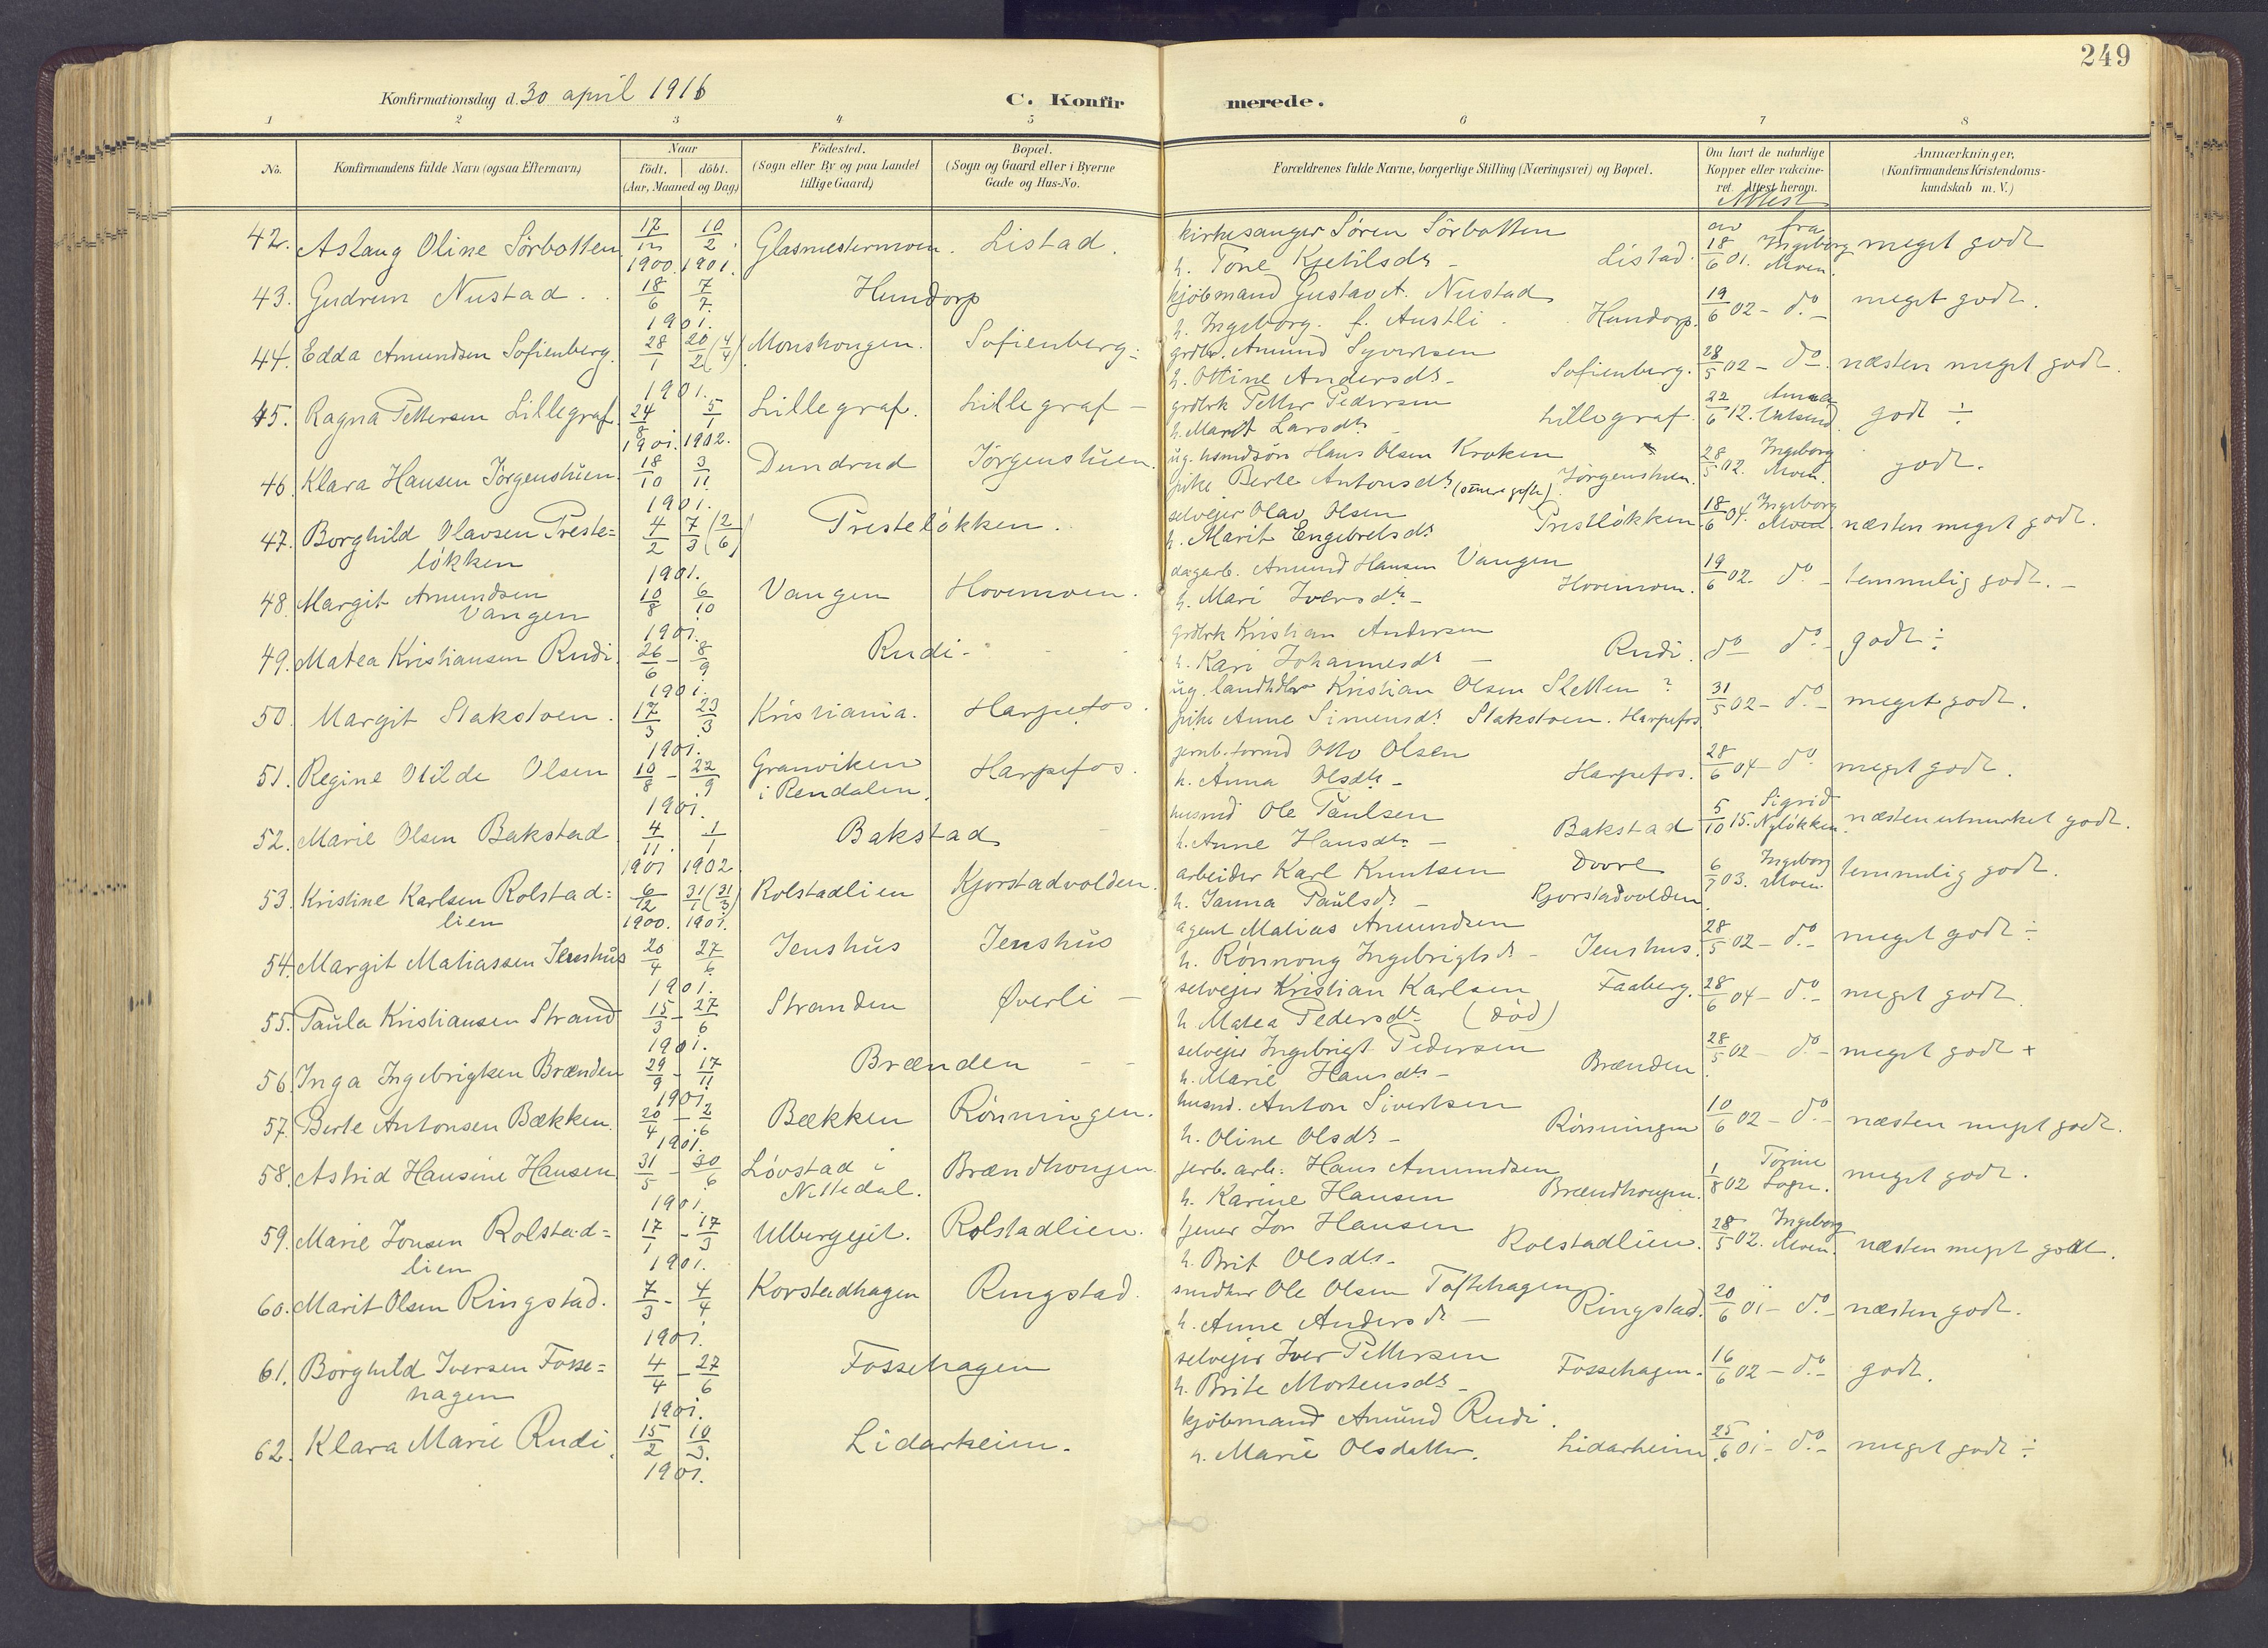 249
Konfirmationsdag d. 30 april 1916
C. Konfir merede.
1 2 3 4 5 6 7 8
No. Konfirmandens fulde Navn (ogsaa Efternavn) Naar födt. döbt. (Aar, Maaned og Dag) Födested. (Sogn eller By og paa Landet tillige Gaard) Bopæl. (Sogn og Gaard eller i Byerne Gade og Hus-No. Forældrenes fulde Navne, borgerlige Stilling (Næringsvei) og Bopæl. Om havt de naturlige Kopper eller vakcineret. Attest herom. Anmærkninger. (Konfirmandens Kristendomskundskab m. V.)
Attest
42. Aslaug Oline Sörbotten 17/12 1900. 10/2 1901. Glasmestermoen. Listad. kirkesanger Sören Sörbotten av 18/6 01. fra Ingeborg Moen. meget godt
h. Tone Kjetilsdtr - Listad.
43. Gudrun Nustad. 18/6 7/7 1901. Hundorp kjöbmand Gustav A. Nustad 19/6 02 - do - meget godt.
h. Ingeborg f. Austli. Hundorp.
44. Edda Amundsen Sofienberg. 28/1 20/2 (4/4) 1901. Monshougen. Sofienberg. grdbr. Amund Syvertsen 28/5 02 - do - næsten meget godt.
h. Ottine Andersdtr - Sofienberg.
45. Ragna Pettersen Lillegraf 24/8 1901. 5/1 1902. Lillegraf. Lillegraf - grdbrk Petter Pedersen 22/6 12. Anna godt ÷
h. Marit Larsdtr Lillegraf.
46. Klara Hansen Jörgenstuen. 18/10 3/11 1901. Dundrud Jörgenstuen. ug. husmdsön Hans Olsen Kroken 28/5 02. Ingeborg Moen. godt.
pike Berte Antonsdtr Jörgenstuen.
47. Borghild Olavsen Preste= 4/2 7/3 (2/6) 1901. Presteløkken. selveier Olav Olsen Prestløkken 18/6 04. Ingeborg Moen næsten meget godt.
løkken h. Marit Engebretsdtr
48. Margit Amundsen 10/8 6/10 1901. Vangen Hovemoen. dagarb. Amund Hansen Vangen 19/6 02 - do - temmelig godt. -
Vangen h. Mari Iversdtr - Hovemoen.
49. Matea Kristiansen Rudi. 26/6 - 8/9 1901. Rudi - grdbrk Kristian Andersen do do - godt ÷
h. Kari Johannesdtr - Rudi.
50. Margit Stakstoen. 17/3 23/3 1901. Kristiania. Harpefos. ug. landhdlr Kristian Olsen Sletten ? 31/5 02 - do - meget godt.
pike Anne Simensdtr Stakstoen. Harpefos
51. Regine Otilde Olsen 10/8 - 22/9 1901. Granviken Harpefos. jernb.formd Otto Olsen 28/6 04 - do meget godt.
i Rendalen. h. Anna Olsdtr - Harpefos.
52. Marie Olsen Bakstad 4/11 1901 1/1 1902 Bakstad husmd Ole Paulsen 5/10 15. Sigrid Nyløkken. næsten utmerket godt.
h. Anne Hansdtr - Bakstad
53. Kristine Karlsen Rolstad= 6/12 1900. 31/1 (31/3) 1901. Rolstadlien Kjorstadvolden. arbeider Karl Knutsen Dovre 6/7 03. Ingeborg Moen. temmelig godt.
lien h. Janna Paulsdtr - Kjorstadvolden
54. Margit Matiassen Jenshus 20/4 27/6 1901. Jenshus Jenshus agent Matias Amundsen 28/5 02 - do - meget godt ÷
h. Rönnoug Ingebrigtsdtr - Jenshus.
55. Paula Kristiansen Strand 15/3 - 27/6 1901. Stranden Øverli - selveier Kristian Karlsen Faaberg. 28/6 04 - do - meget godt.
h. Matea Pedersdtr (död)
56. Inga Ingebrigtsen Brænden 29/9 - 17/11 1901. Brænden selveier Ingebrigt Pedersen 28/5 02 - do - meget godt +
h. Marie Hansdtr - Brænden
57. Berte Antonsen Bækken. 20/4 - 2/6 1901. Bækken Rönningen. husmd. Anton Sivertsen 10/6 02 - do - næsten meget godt.
h. Oline Olsdtr - Rönningen
58. Astrid Hansine Hansen 31/5 - 30/6 1901. Løvstad i Brændhougen. jerb.arb. Hans Amundsen 1/8 02 Torine Sogn. meget godt.
Nittedal. h. Karine Hansen Brændhougen.
59. Marie Jonsen Rolstad= 17/1 - 17/3 1901. Ulbergejet. Rolstadlien. tjener Jon Hansen 28/5 02. Ingeborg Moen. næsten meget godt.
lien h. Brit Olsdtr - Rolstadlien.
60. Marit Olsen Ringstad. 7/3 - 4/4 1901. Korstadhagen Ringstad. snedker Ole Olsen Toftehagen 20/6 01 - do - næsten godt.
h. Anne Andersdtr - Ringstad.
61. Borghild Iversen Fosse= 4/4 - 27/6 1901. Fossehagen selveier Iver Pettersen 16/6 02 - do - godt.
hagen h. Brite Mortensdtr - Fossehagen.
62. Klara Marie Rudi. 15/2 10/3 1901. Lidarheim. kjöbmand Amund Rudi. 25/6 01 - do - meget godt ÷
h. Marie Olsdatter. Lidarheim.